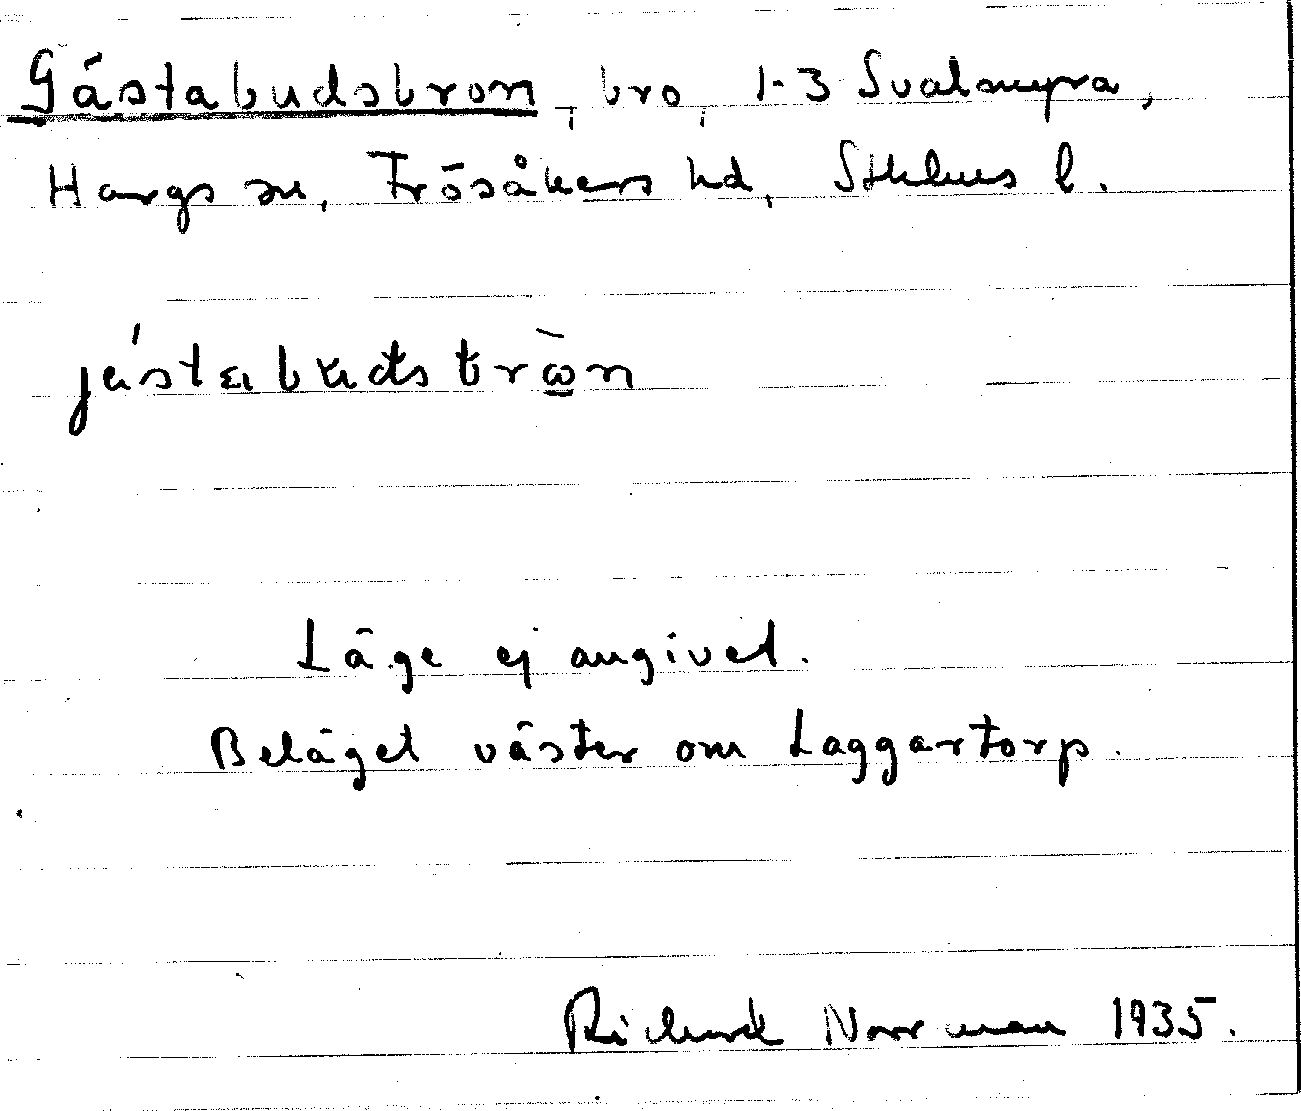 Gästabudsbron, bro, 1-3 Svalmyra,
Hargs sn, Frösåkers hd, Sthlms l.
Läge ej angivet.
Beläget väster om Laggartorp.
Richard Norrman 1935.